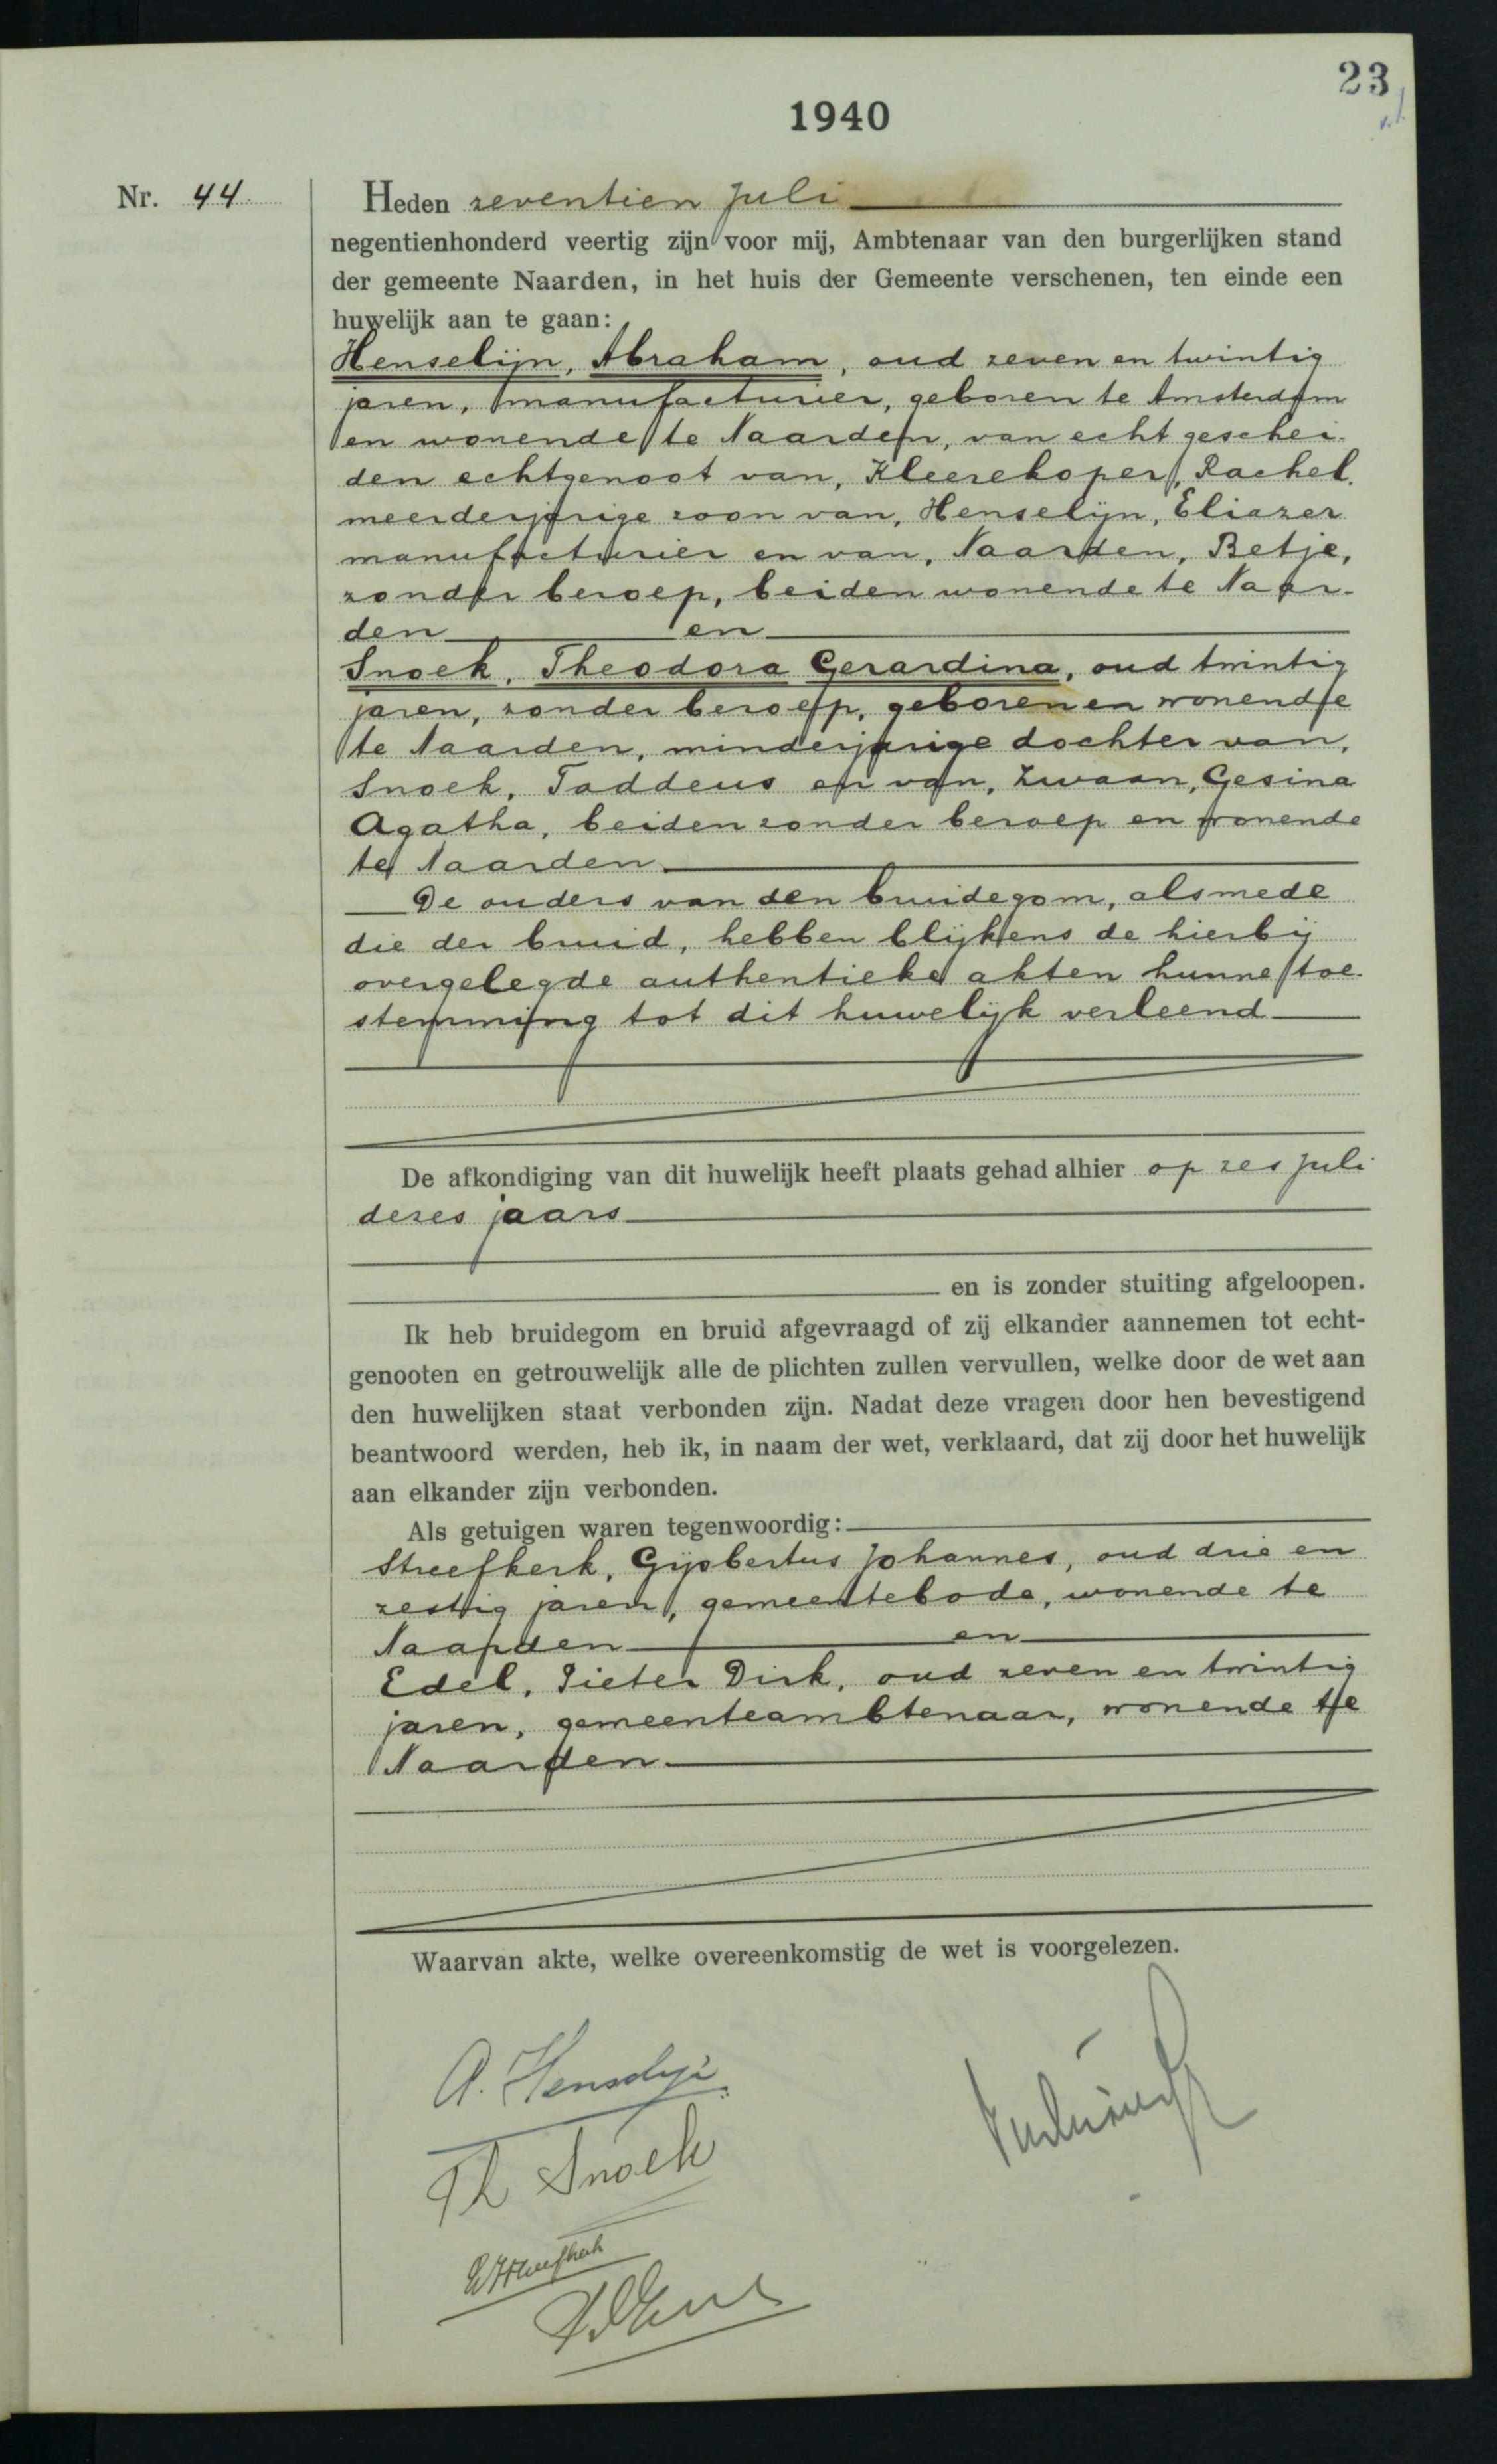 23
1940
Nr. 44
Heden zeventien Juli
negentienhonderd veertig zijn voor mij, Ambtenaar van den burgerlijken stand
der gemeente Naarden, in het huis der Gemeente verschenen, ten einde een
huwelijk aan te gaan:
Henselijn, Abraham, oud zeven en twintig
jaren, manufacturier, geboren te Amsterdam
en wonende te Naarden, van echt geschei-
den echtgenoot van, Kleerekoper, Rachel.
meerderjarige zoon van, Henselijn, Eliazer
manufacturier en van, Naarden, Betje,
zonder beroep, beiden wonende te Naar-
den en
Snoek, Theodora Gerardina, oud twintig
jaren, zonder beroep, geboren en wonende
te Naarden, minderjarige dochter van,
Snoek, Taddeus en van, Zwaan, Gesina
Agatha, beiden zonder beroep en wonende
te Naarden.
De ouders van den bruidegom, alsmede
die der bruid, hebben blijkens de hierbij
overgelegde authentieke akten hunne toe-
stemming tot dit huwelijk verleend
De afkondiging van dit huwelijk heeft plaats gehad alhier op zes Juli
dezes jaars
en is zonder stuiting afgeloopen.
Ik heb bruidegom en bruid afgevraagd of zij elkander aannemen tot echt-
genooten en getrouwelijk alle de plichten zullen vervullen, welke door de wet aan
den huwelijken staat verbonden zijn. Nadat deze vragen door hen bevestigend
beantwoord werden, heb ik, in naam der wet, verklaard, dat zij door het huwelijk
aan elkander zijn verbonden.
Als getuigen waren tegenwoordig:
Streefkerk, Gijsbertus Johannes, oud drie en
zestig jaren, gemeentebode, wonende te
Naarden en
Edel, Pieter Dirk, oud zeven en twintig
jaren, gemeenteambtenaar, wonende te
Naarden.
Waarvan akte, welke overeenkomstig de wet is voorgelezen.
A. Henselijn
Th Snoek
GJStreefkerk
PDEdel